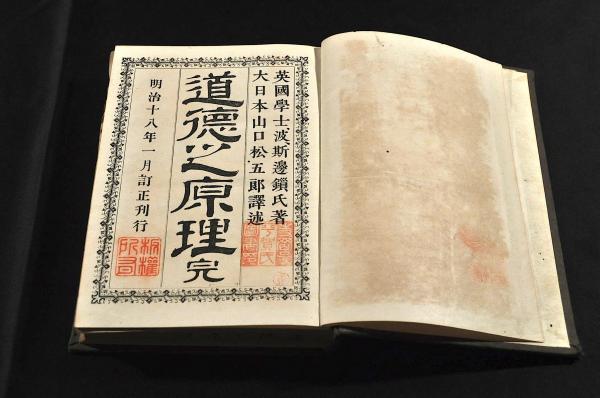 英國學士波斯邊鎖氏著
大日本山口松五郎譯述
道德之原理完
明治十八年一月訂正刊行
板權
所有